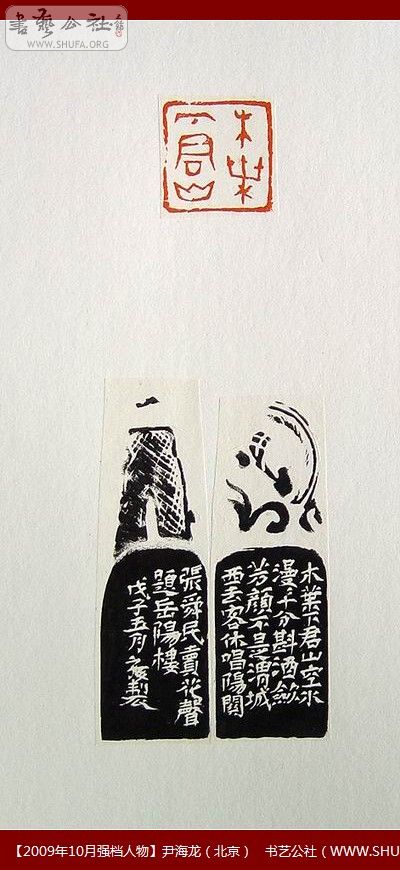 書藝公社
WWW.SHUFA.ORG
木葉
下君山
木葉下君山空水
漫〻十分斟酒斂
芳顏不是渭城
西去客休唱陽關
張舜民賣花聲
題岳陽樓
戊子五月製
【2009年10月强档人物】尹海龙（北京） 书艺公社（WWW.SHU